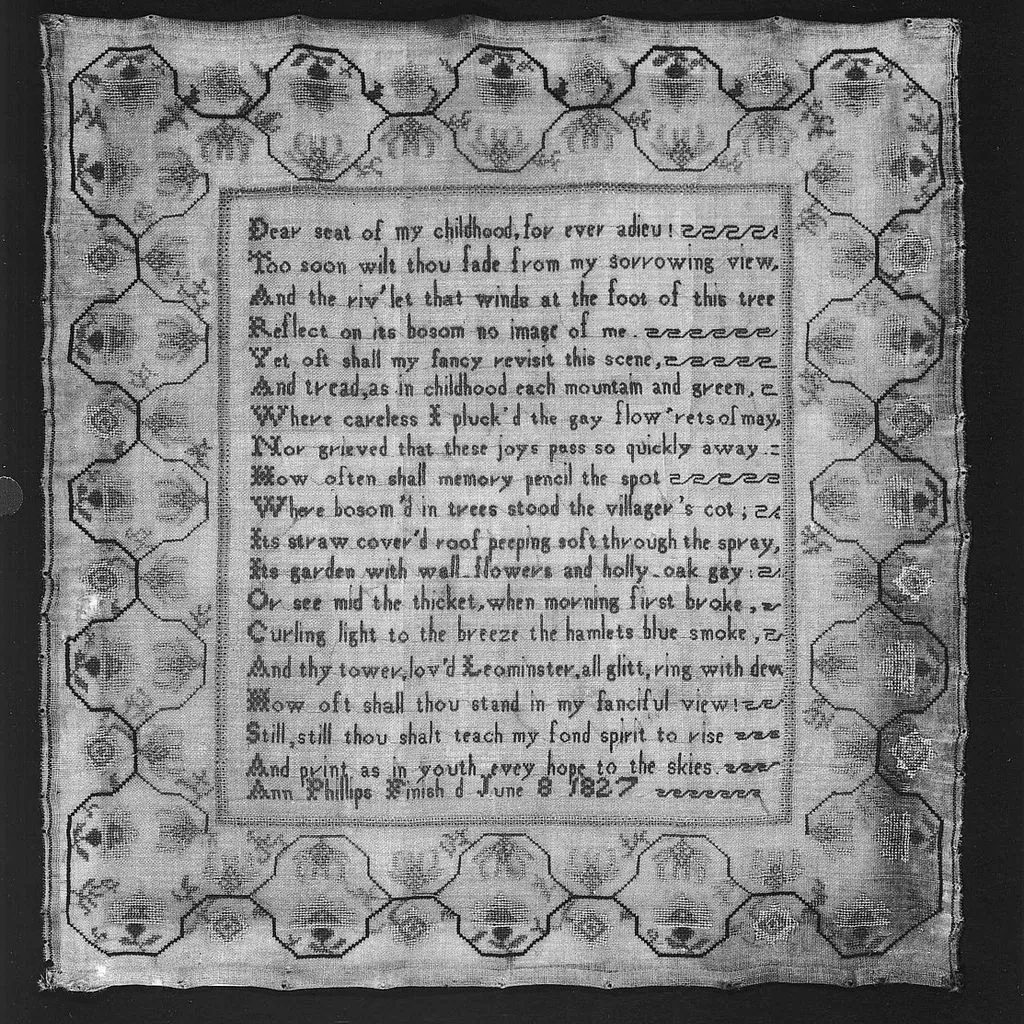 Dear seat of my childhood, for ever adieu!
Too soon wilt thou fade from my sorrowing view,
And the riv'let that winds at the foot of this tree
Reflect on its bosom no image of me.
Yet oft shall my fancy revisit this scene,
And tread, as in childhood each mountain and green,
Where careless I pluck'd the gay flow'rets of may,
Nor grieved that these joys pass so quickly away.
How often shall memory pencil the spot
Where bosom'd in trees stood the villager's cot;
Its straw cover'd roof peeping soft through the spray,
Its garden with wall-flowers and holly-oak gay:
Or see mid the thicket, when morning first broke,
Curling light to the breeze the hamlets blue smoke,
And thy tower, lov'd Leominster, all glitt,ring with dew
How oft shall thou stand in my fanciful view!
Still, still thou shalt teach my fond spirit to rise
And print, as in youth evey hope to the skies.
Ann Phillips Finish d June 8 1827